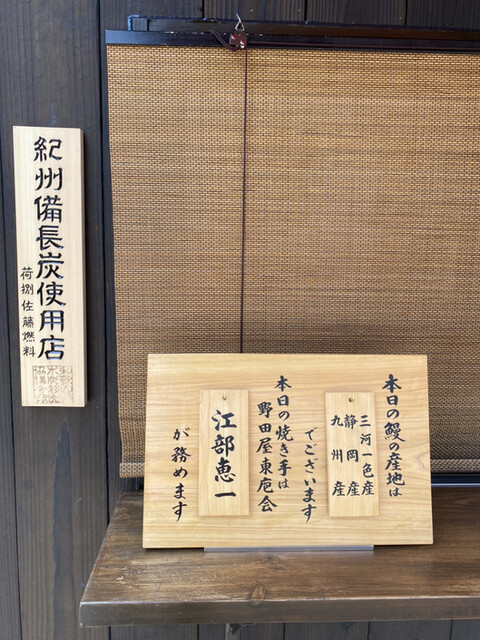 紀州備長炭使用店
荷捌佐藤燃料
本日の鰻の産地は
三河一色産
静岡産
九州産
でございます
本日の焼き手は
野田屋東庖会
江部恵一
が務めます